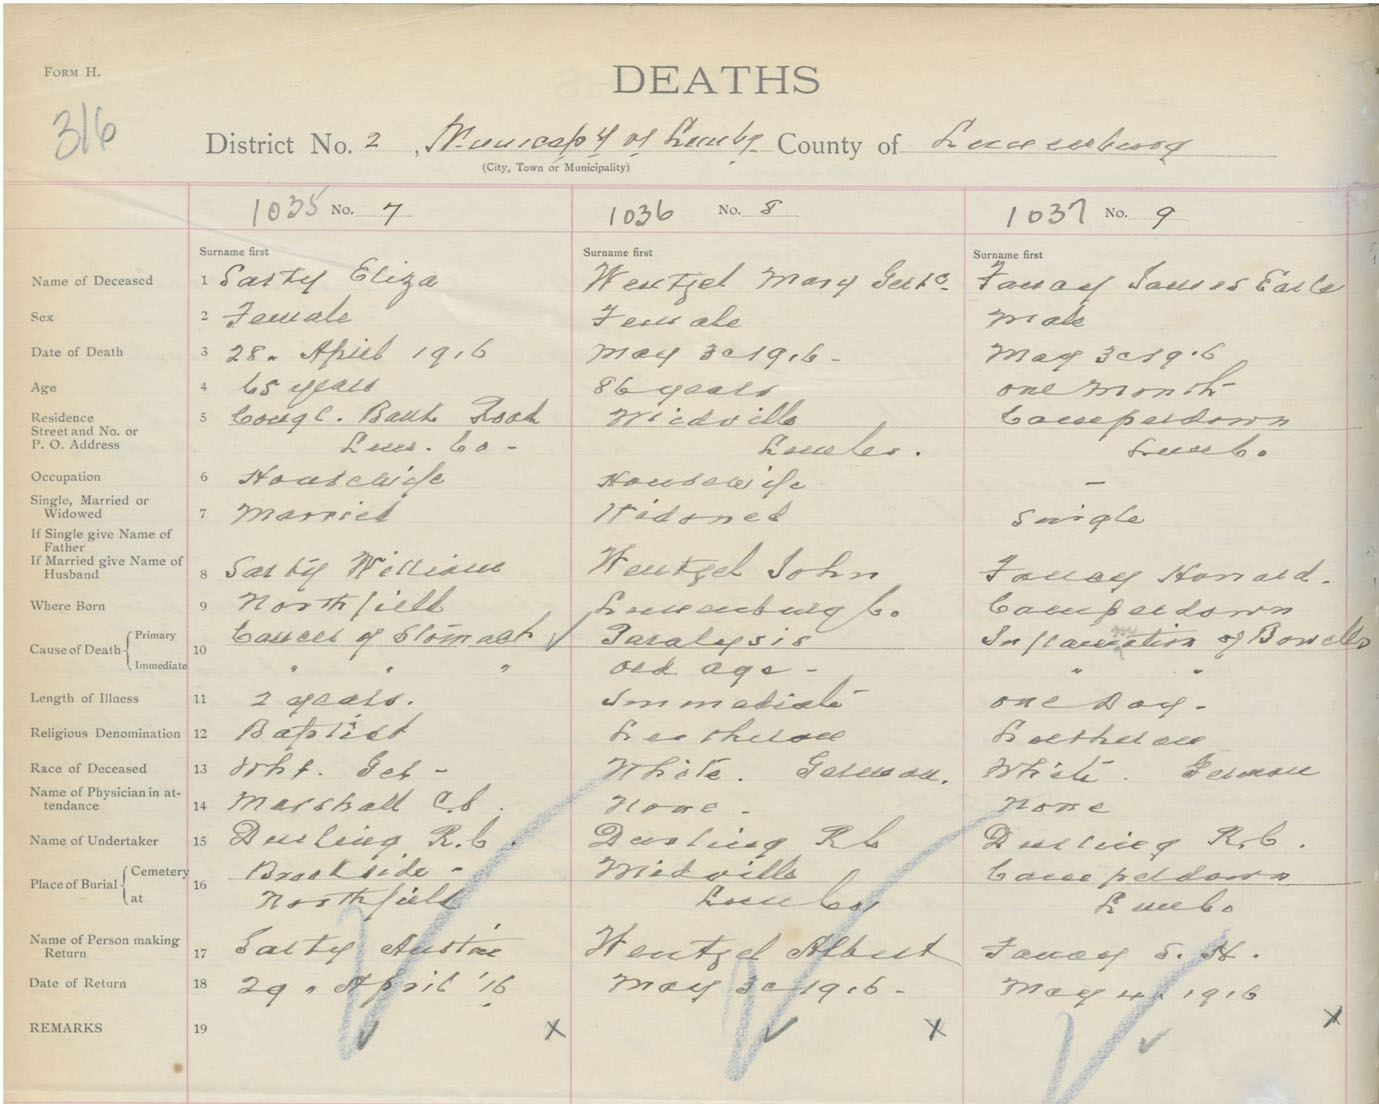 FORM H.
DEATHS
316
District No. 2, Municap'y of Lunbg County of Lunenburg
(City, Town or Municipality)
1035 No. 7 1036 No. 8 1037 No. 9
Surname first Surname first Surname first
Name of Deceased 1 Sarty Eliza Wentzel Mary Fancy James Earle
Sex 2 Female Female Male
Date of Death 3 28. April 1916 May 3d 1916 - May 3d 1916
Age 4 65 years 86 years one month
Residence 5 Bank Midville Camperdown
Street and No. or
P. O. Address Lun. Co - Lun Co. Lun Co.
Occupation 6 Housewife Housewife -
Single, Married or
Widowed 7 Married Widowed Single
If Single give Name of
Father
If Married give Name of
Husband 8 Sarty William Wentzel John Fancy Howard.
Where Born 9 Northfield Lunenburg Co. Camperdown
Cause of Death Primary 10 Cancer of Stomach Paralysis Inflammation of Bowells
Immediate " " " old age - " "
Length of Illness 11 2 years. Immediate one Day -
Religious Denomination 12 Baptist Lutheran Lutheran
Race of Deceased 13 Wht. Ger - White. German. White. German
Name of Physician in at-
tendance 14 Marshall C.b. None - None
Name of Undertaker 15 Durling R.C. Durling R C Durling R.C.
Place of Burial Cemetery 16 Brookside - Midville Camperdown
at Northfield Lun Co Lun Co
Name of Person making
Return 17 Sarty Austin Wentzel Albert Fancy S. H.
Date of Return 18 29. April '16 May 3d 1916 - May 4. 1916
REMARKS 19 X X X